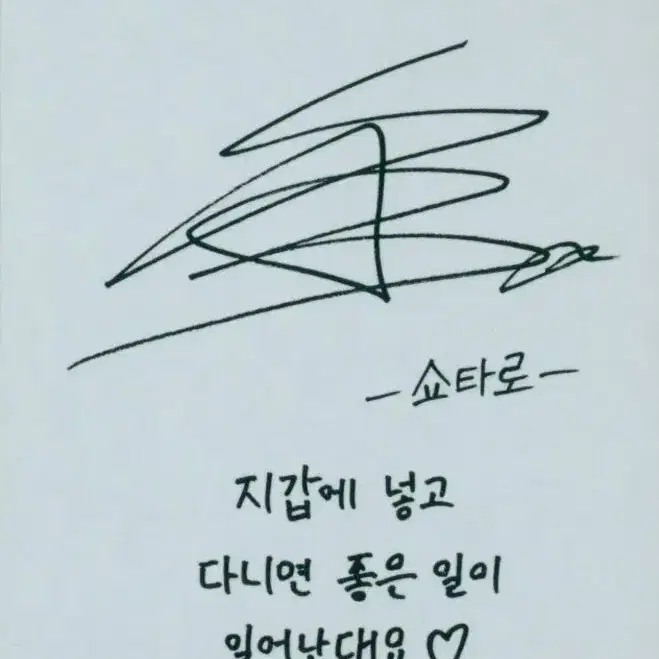 -쇼타로-
지갑에 넣고
다니면 좋은 일이
일어난대요♡